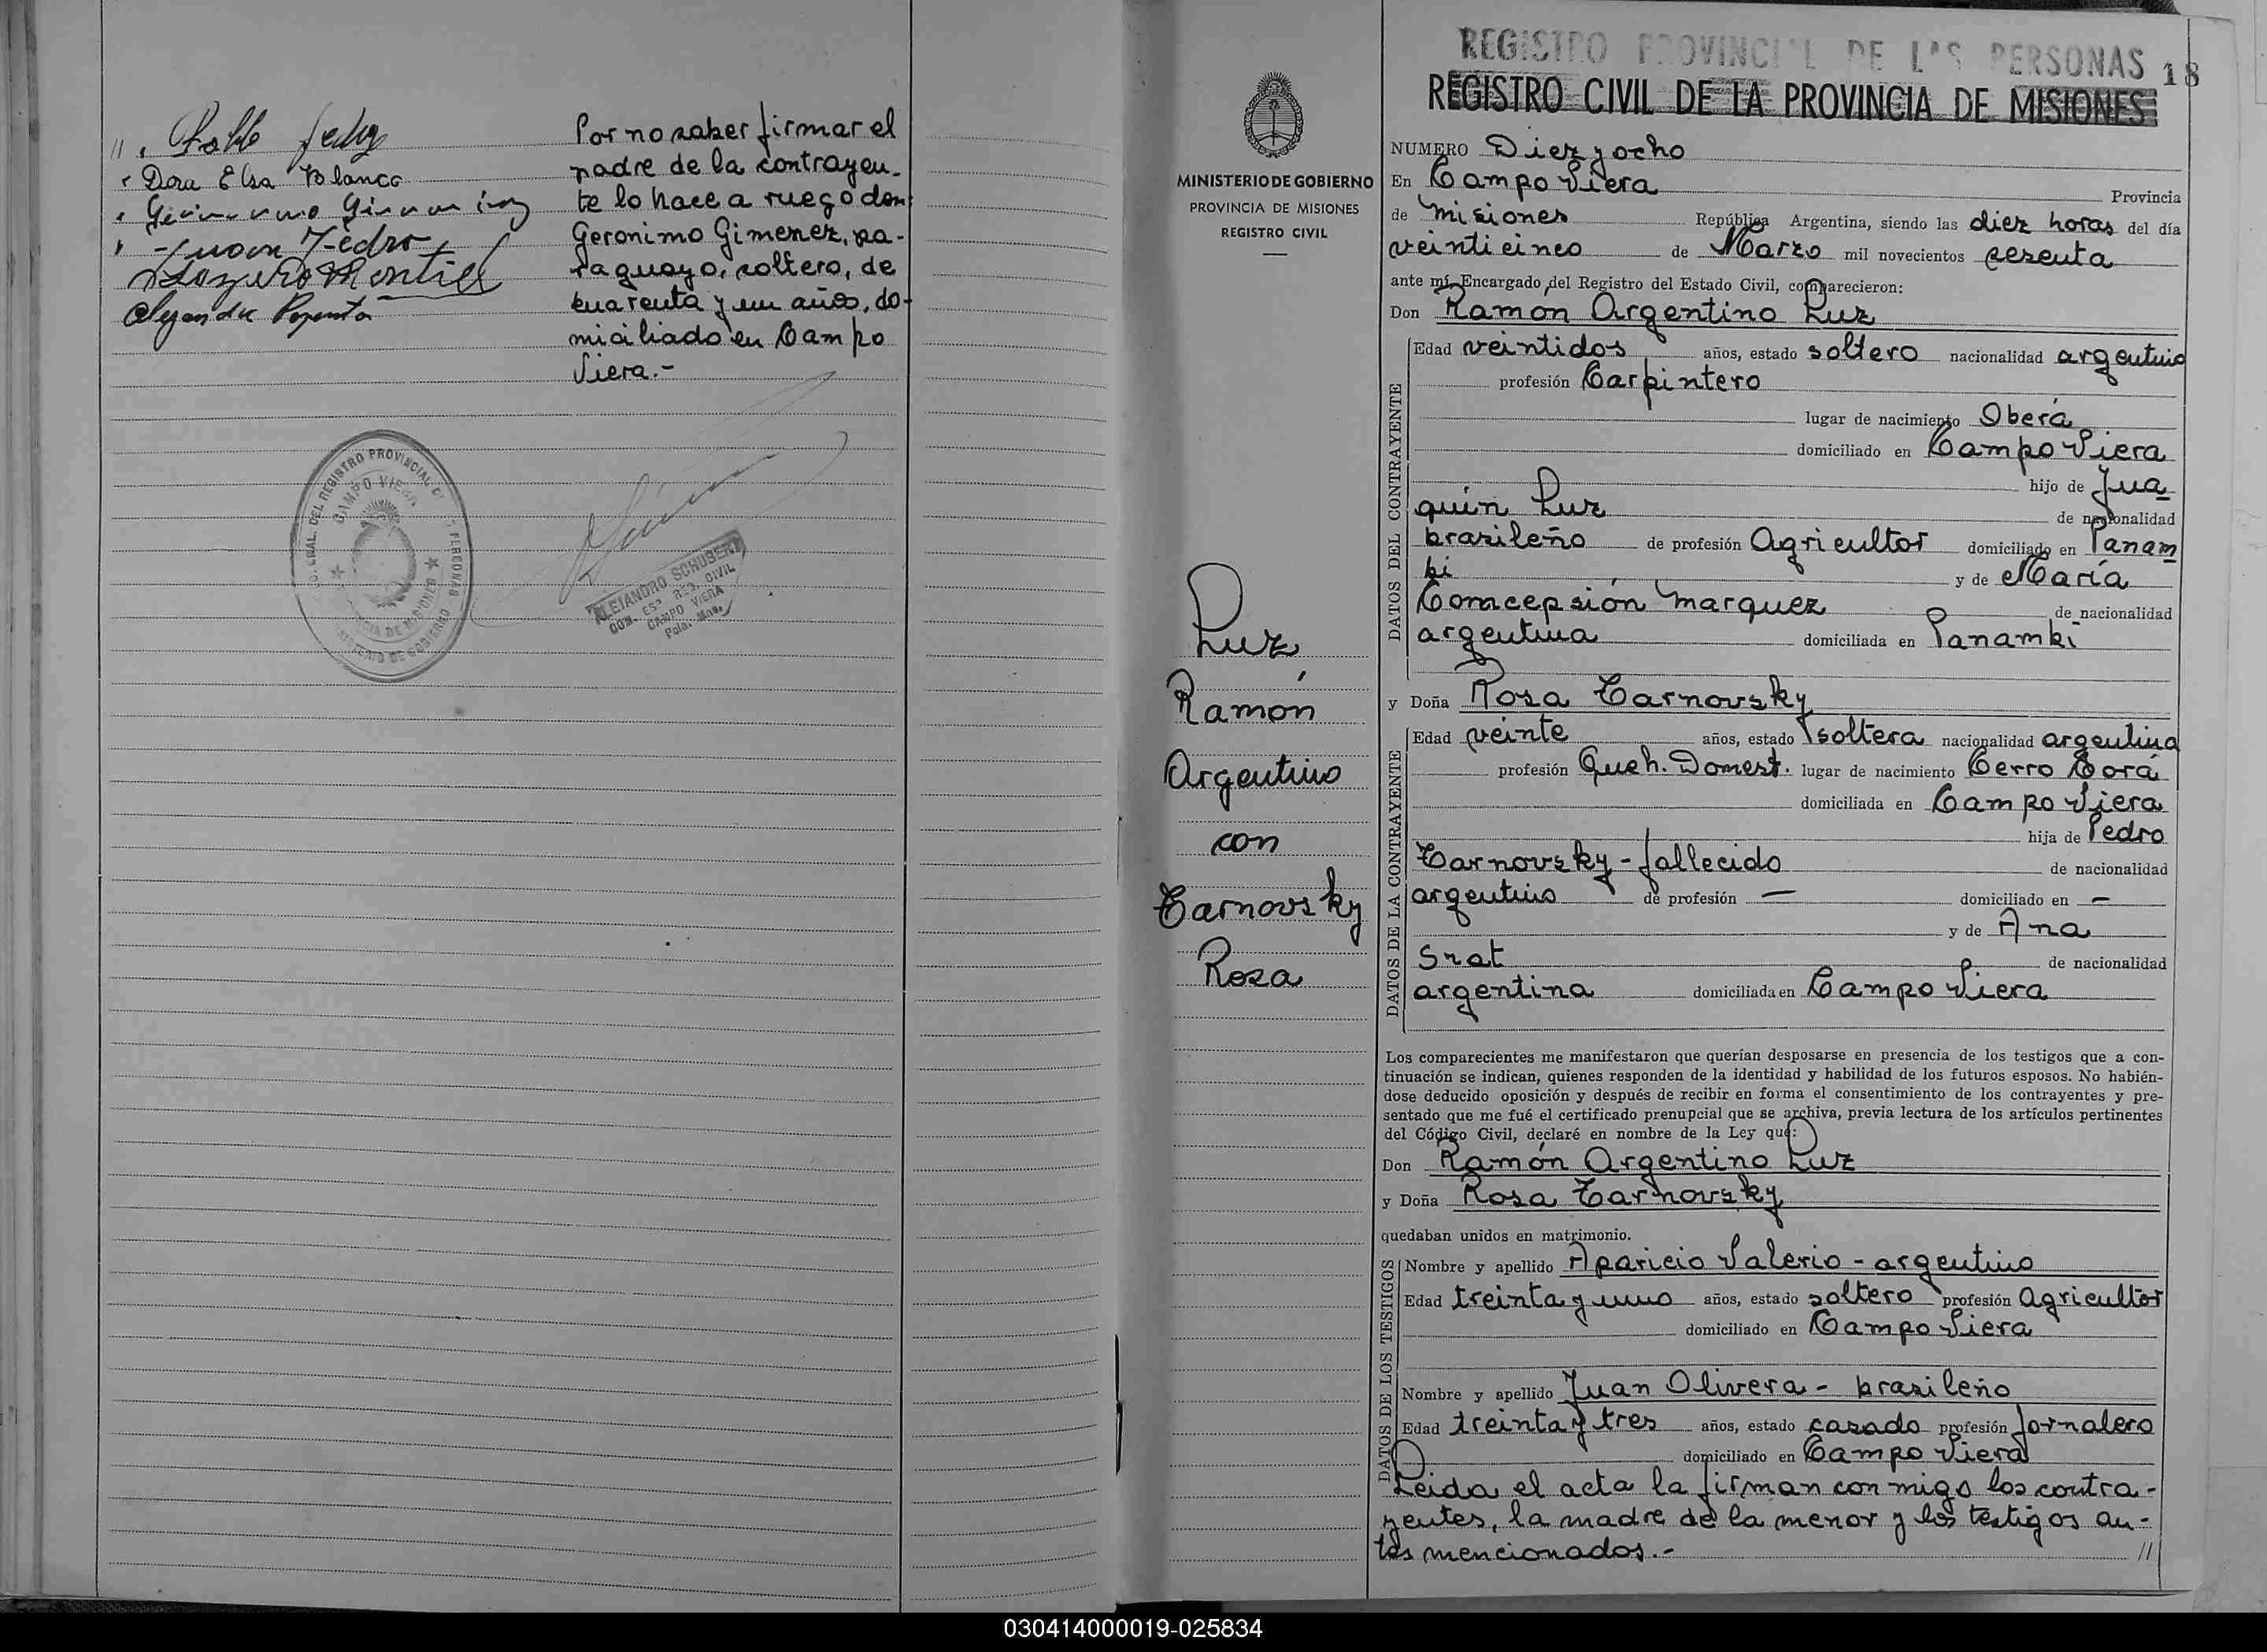 Dora Elsa Blanco
Juan Pedro
Por no saber firmar el
padre de la contrayen-
te lo hace a ruego don:
Geronimo Gimenez, pa-
raguayo, soltero, de
cuarenta y un años, do-
miciliado en Campo
Viera.-
CAMPO VIERA
ALEJANDRO SCHUBERT
CAMPO VIERA
MINISTERIO DE GOBIERNO
PROVINCIA DE MISIONES
REGISTRO CIVIL
Luz
Ramón
Argentino
con
Tarnovsky
Rosa
REGISTRO PROVINCIAL DE LAS PERSONAS
18
REGISTRO CIVIL DE LA PROVINCIA DE MISIONES
NUMERO Diez y ocho
En Campo Viera Provincia
de Misiones República Argentina, siendo las diez horas del día
veinticinco de Marzo mil novecientos sesenta
ante mí, Encargado del Registro del Estado Civil, comparecieron:
Don Ramon Argentino Luz
DATOS DEL CONTRAYENTE
Edad veintidos años, estado soltero nacionalidad argentino
profesión Carpintero
lugar de nacimiento Oberá
domiciliado en Campo Viera
hijo de Jua-
quin Luz de nacionalidad
brasileño de profesión Agricultor domiciliado en Panam-
bi y de María
Comcepsión Marquez de nacionalidad
argentina domiciliada en Panambi
y Doña Rosa Tarnovsky
DATOS DE LA CONTRAYENTE
Edad veinte años, estado soltera nacionalidad argentina
profesión Queh. Domest. lugar de nacimiento Cerro Corá
domiciliada en Campo Viera
hija de Pedro
Tarnovsky - fallecido de nacionalidad
argentino de profesión — domiciliado en —
y de Ana
Srat de nacionalidad
argentina domiciliada en Campo Viera
Los comparecientes me manifestaron que querían desposarse en presencia de los testigos que a con-
tinuación se indican, quienes responden de la identidad y habilidad de los futuros esposos. No habién-
dose deducido oposición y después de recibir en forma el consentimiento de los contrayentes y pre-
sentado que me fué el certificado prenupcial que se archiva, previa lectura de los artículos pertinentes
del Código Civil, declaré en nombre de la Ley que:
Don Ramón Argentino Luz
y Doña Rosa Tarnovsky
quedaban unidos en matrimonio.
DATOS DE LOS TESTIGOS
Nombre y apellido Aparicio Valerio - argentino
Edad treinta y uno años, estado soltero profesión Agricultor
domiciliado en Campo Viera
Nombre y apellido Juan Olivera - brasileño
Edad treinta y tres años, estado casado profesión Jornalero
domiciliado en Campo Viera
Leida el acta la firman con migo los contra-
yentes, la madre de la menor y los testigos an-
tes mencionados.- //
030414000019-025834